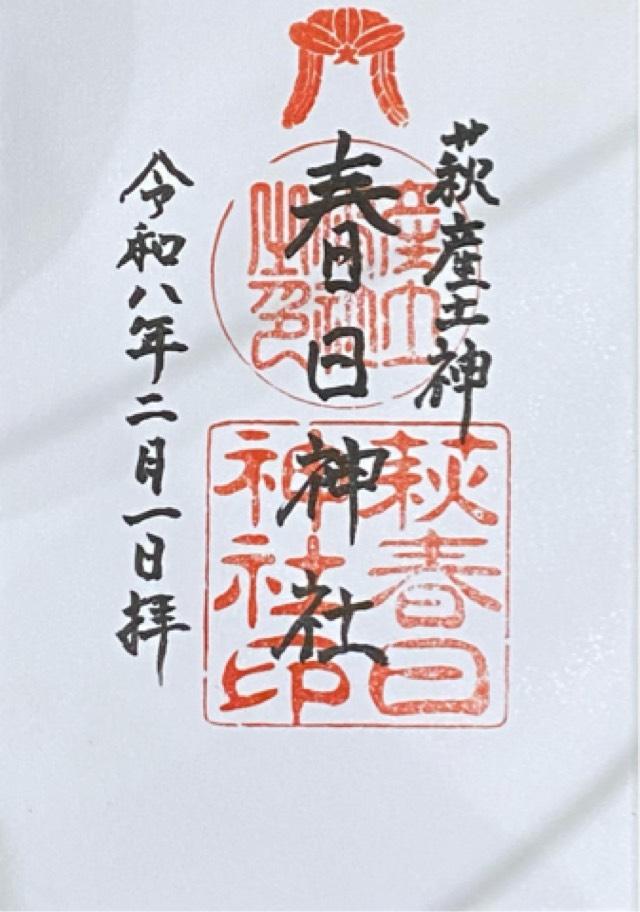 萩産土神
春日神社
令和八年二月一日拝
萩春日
神社印